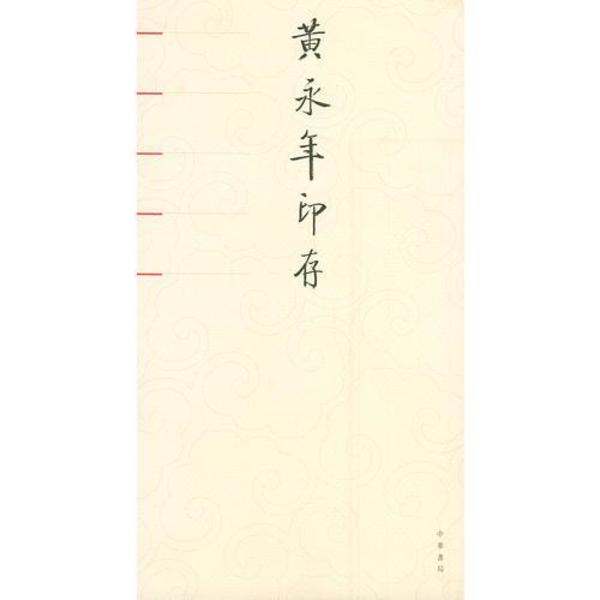 黃永年印存
中華書局